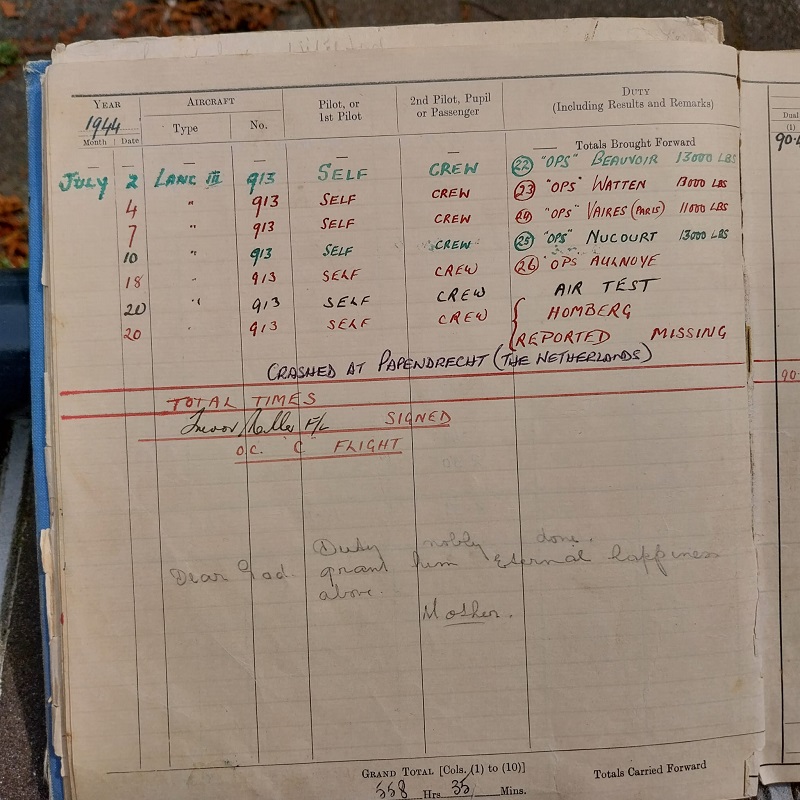 YEAR AIRCRAFT Pilot, or 1st Pilot 2nd Pilot, Pupil or Passenger DUTY (Including Results and Remarks)
1944
Month Date Type No. Dual
(1)
— — — — — — —— Totals Brought Forward 90.
JULY 2 LANC III 913 SELF CREW (22) "OPS" BEAUVOIR 13000 LBS
4 " 913 SELF CREW (23) "OPS" WATTEN 13000 LBS
7 " 913 SELF CREW (24) "OPS" VAIRES (PARIS) 11000 LBS
10 " 913 SELF CREW (25) "OPS" NUCOURT 13000 LBS
18 " 913 SELF CREW (26) "OPS AULNOYE
20 " 913 SELF CREW AIR TEST
20 " 913 SELF CREW { HOMBERG
REPORTED MISSING
CRASHED AT PAPENDRECHT (THE NETHERLANDS)
90.
TOTAL TIMES
Trevor F/L SIGNED
O.C. "C" FLIGHT
Duty nobly done.
Dear God. grant him Eternal happiness
above.
Mother.
GRAND TOTAL [Cols. (1) to (10)] Totals Carried Forward
558 Hrs 35 Mins.